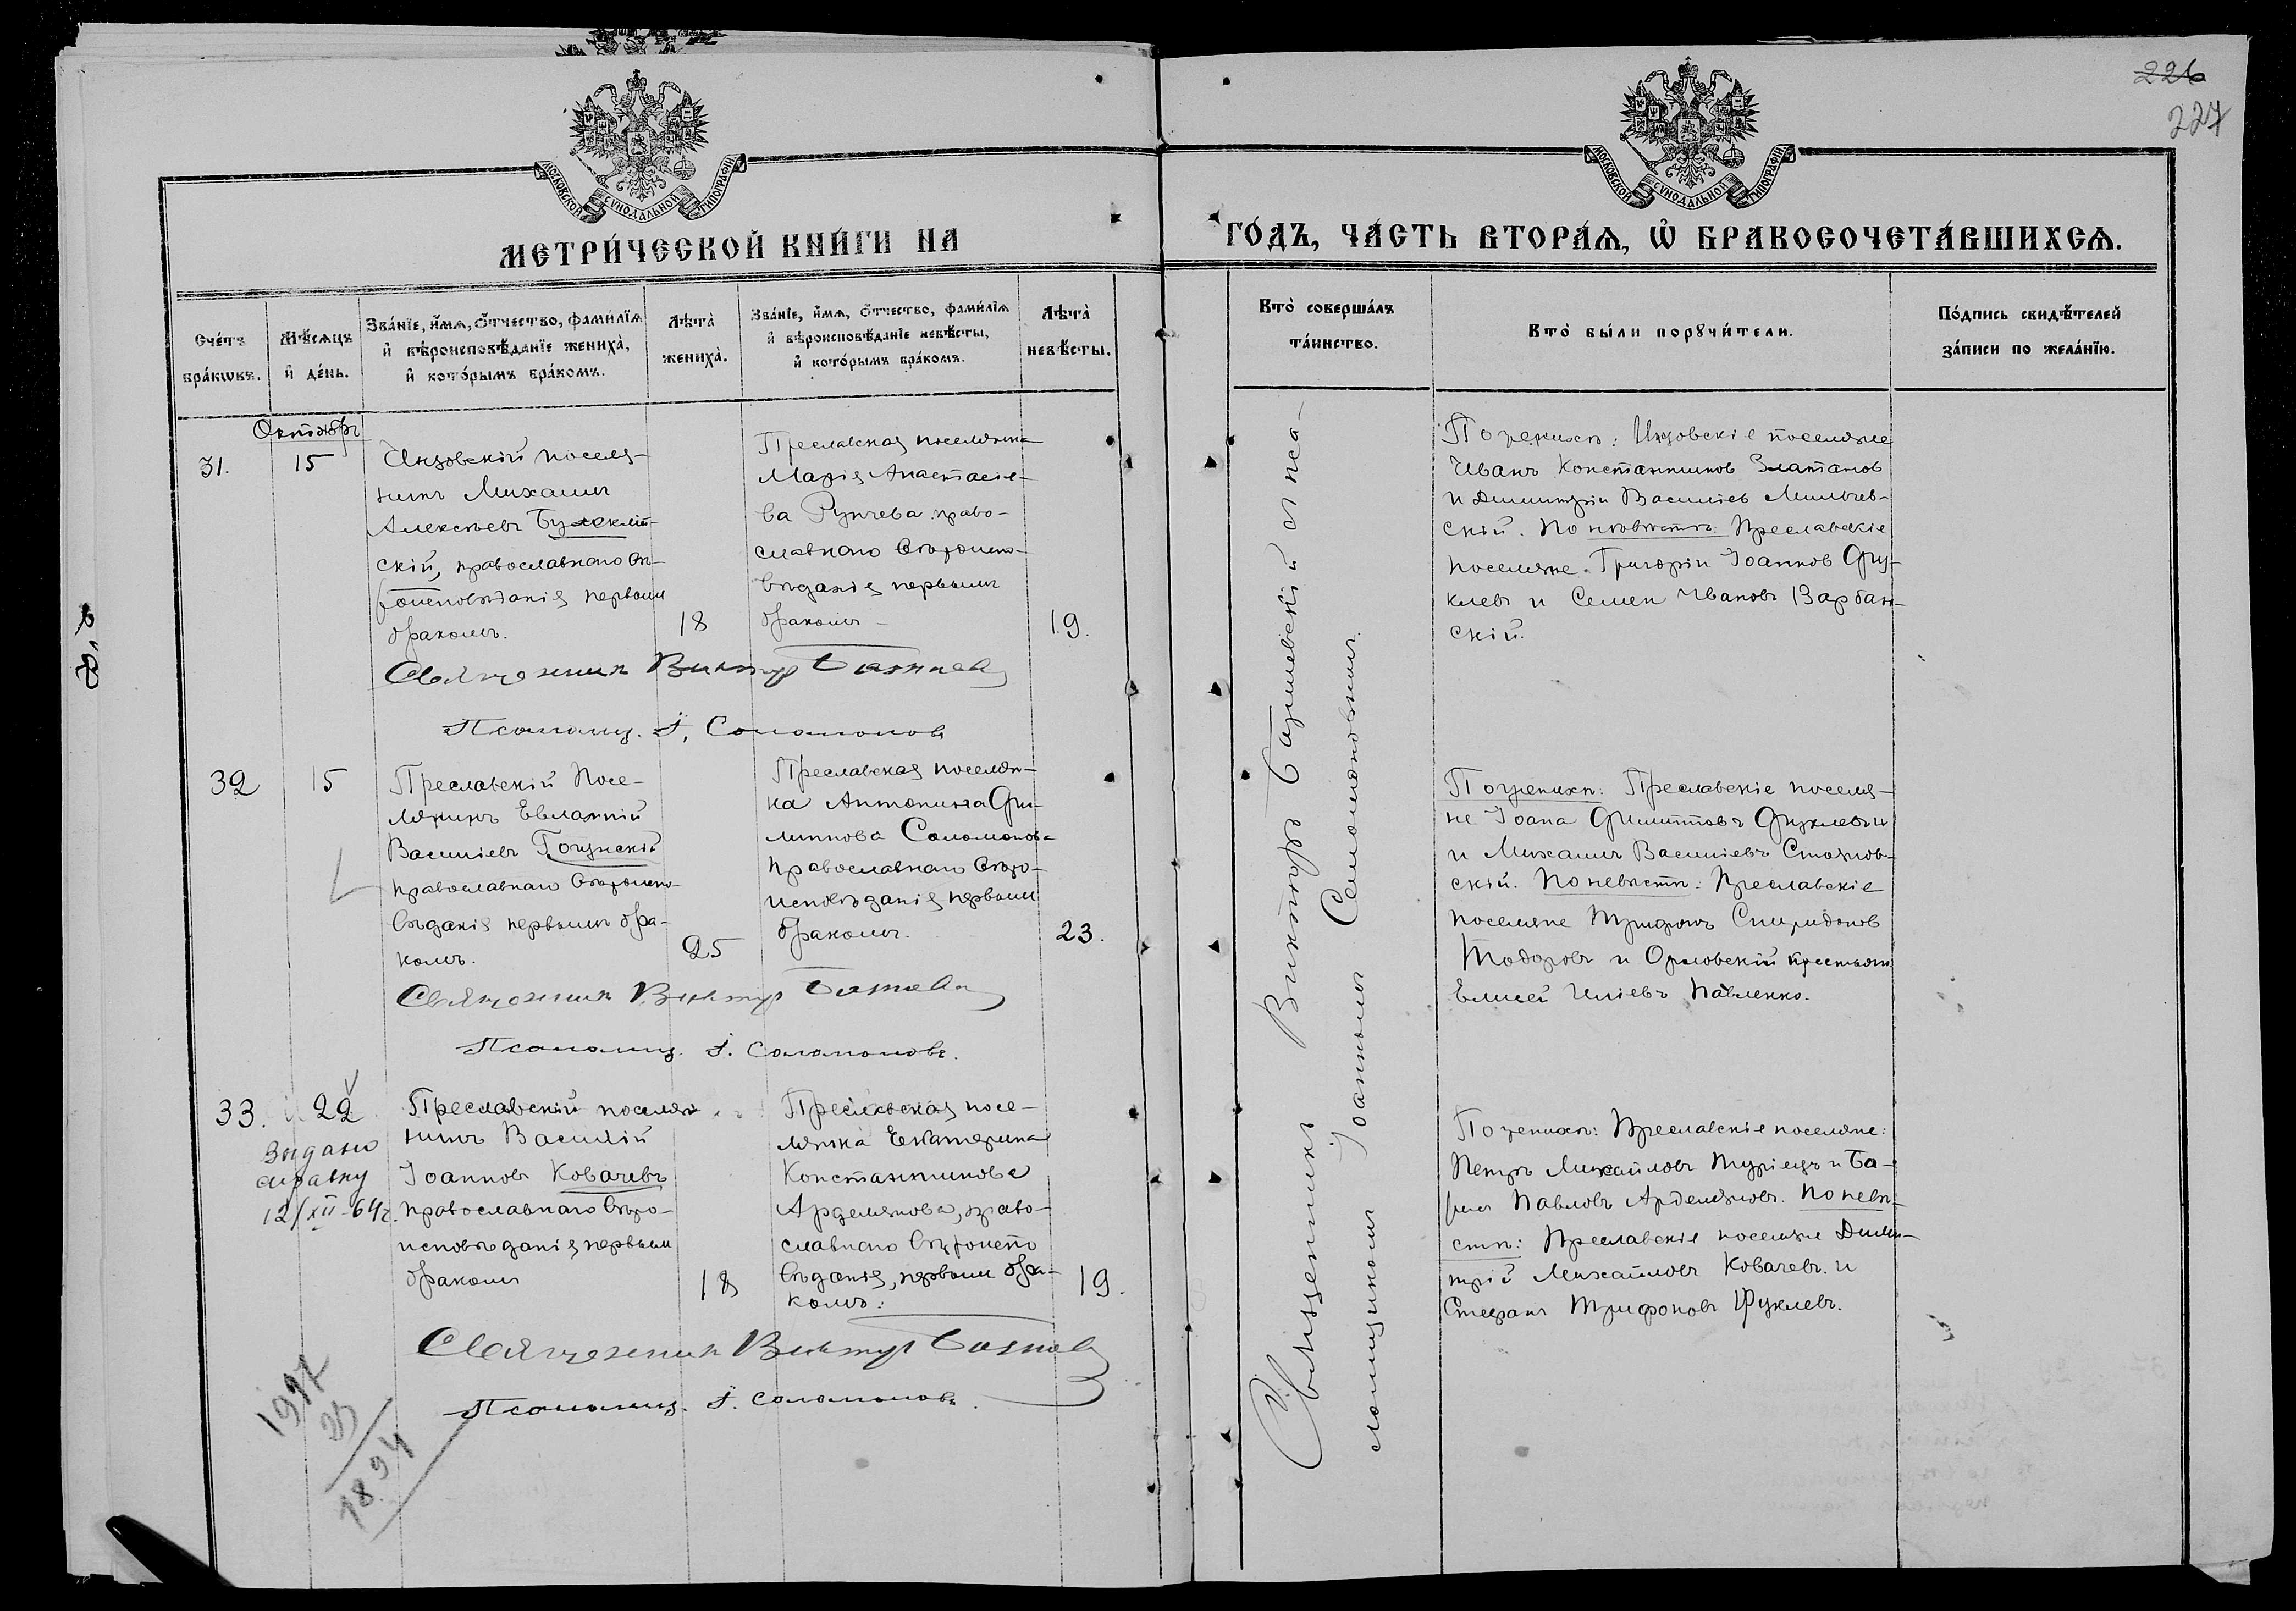 226
227
МОСКОВСКОЙ СѴНОДАЛЬНОЙ ТИПОГРАФІИ
МОСКОВСКОЙ СѴНОДАЛЬНОЙ ТИПОГРАФІИ
МЕТРИ́ЧЕСКОЙ КНИ́ГИ НА
ГО́ДЪ, ЧА́СТЬ ВТОРА́Ѧ, Ѽ БРАКОСОЧЕТА́ВШИХСѦ.
Сче́тъ
бра́кѡвъ.
Мѣ́сѧцъ
и҆ де́нь.
Зва́нїе, и҆́мѧ, ѻ҆́тчество, фами́лїѧ
и҆ вѣроисповѣ́данїе жениха̀,
и҆ кото́рымъ бра́комъ.
Лѣта̀
жениха̀.
Зва́нїе, и҆́мѧ, ѻ҆́тчество, фами́лїѧ
и҆ вѣроисповѣ́данїе невѣ́сты,
и҆ кото́рымъ бра́комъ.
Лѣта̀
невѣ́сты.
Кто̀ соверша́лъ
та́инство.
Кто̀ бы́ли порꙋчи́тели.
По́дпись свидѣ́телей
за́писи по жела́нїю.
Октябрь
31.
15
Инзовскій поселя-
нинъ Михаилъ
Алексѣевъ
скій, православнаго вѣ-
роисповѣданія первымъ
бракомъ.
18
Преславская поселянка
Марія Анастасіе-
ва Рупчева право-
славнаго вѣроиспо-
вѣданія первымъ
бракомъ
19.
Священникъ Викторъ
Псаломщ. І. Соломоновъ
По женихѣ: Инзовскіе поселяне
Иванъ Константиновъ Златановъ
и Димитрій Василіевъ Мильчев-
скій. По невѣстѣ: Преславскіе
поселяне Григорій Іоанновъ Фу-
клевъ и Семенъ Ивановъ Варбан-
скій.
32
15
Преславскій посе-
лянинъ Евлампій
Василіевъ Гогунскій
православнаго вѣроиспо-
вѣданія первымъ бра-
комъ.
25
Преславская поселян-
ка Антонина Фи-
липпова Соломонова
православнаго вѣро-
исповѣданія первымъ
бракомъ.
23.
Священникъ Викторъ
Псаломщ. І. Соломоновъ.
По женихѣ: Преславскіе поселя-
не Іоана Филипповъ Фуклевъ
и Михаилъ Василіевъ Стоянов-
скій. По невѣстѣ: Преславскіе
поселяне Трифонъ Спиридоновъ
Тодоровъ и Орловскій крестьян.
Елисей Иліевъ Павленко.
33.
22
Выдано
справку
12/XII-64г.
Преславскій поселя-
нинъ Василій
Іоанновъ Ковачевъ
православнаго вѣро-
исповѣданія первымъ
бракомъ
18
Преславская посе-
лянка Екатерина
Константинова
Арделянова, право-
славнаго вѣроиспо
вѣданія, первымъ бра-
комъ.
19.
Священникъ Викторъ
Псаломщ. І. Соломоновъ.
По женихѣ: Преславскіе поселяне:
Петръ Михайловъ Туріецъ и
Павловъ Арделяновъ. По невѣ-
стѣ: Преславскіе поселяне Дими-
трій Михайловъ Ковачевъ и
Стефанъ Трифоновъ Фуклевъ.
Священникъ Викторъ съ пса-
ломщикомъ Іоанномъ Соломоновымъ.